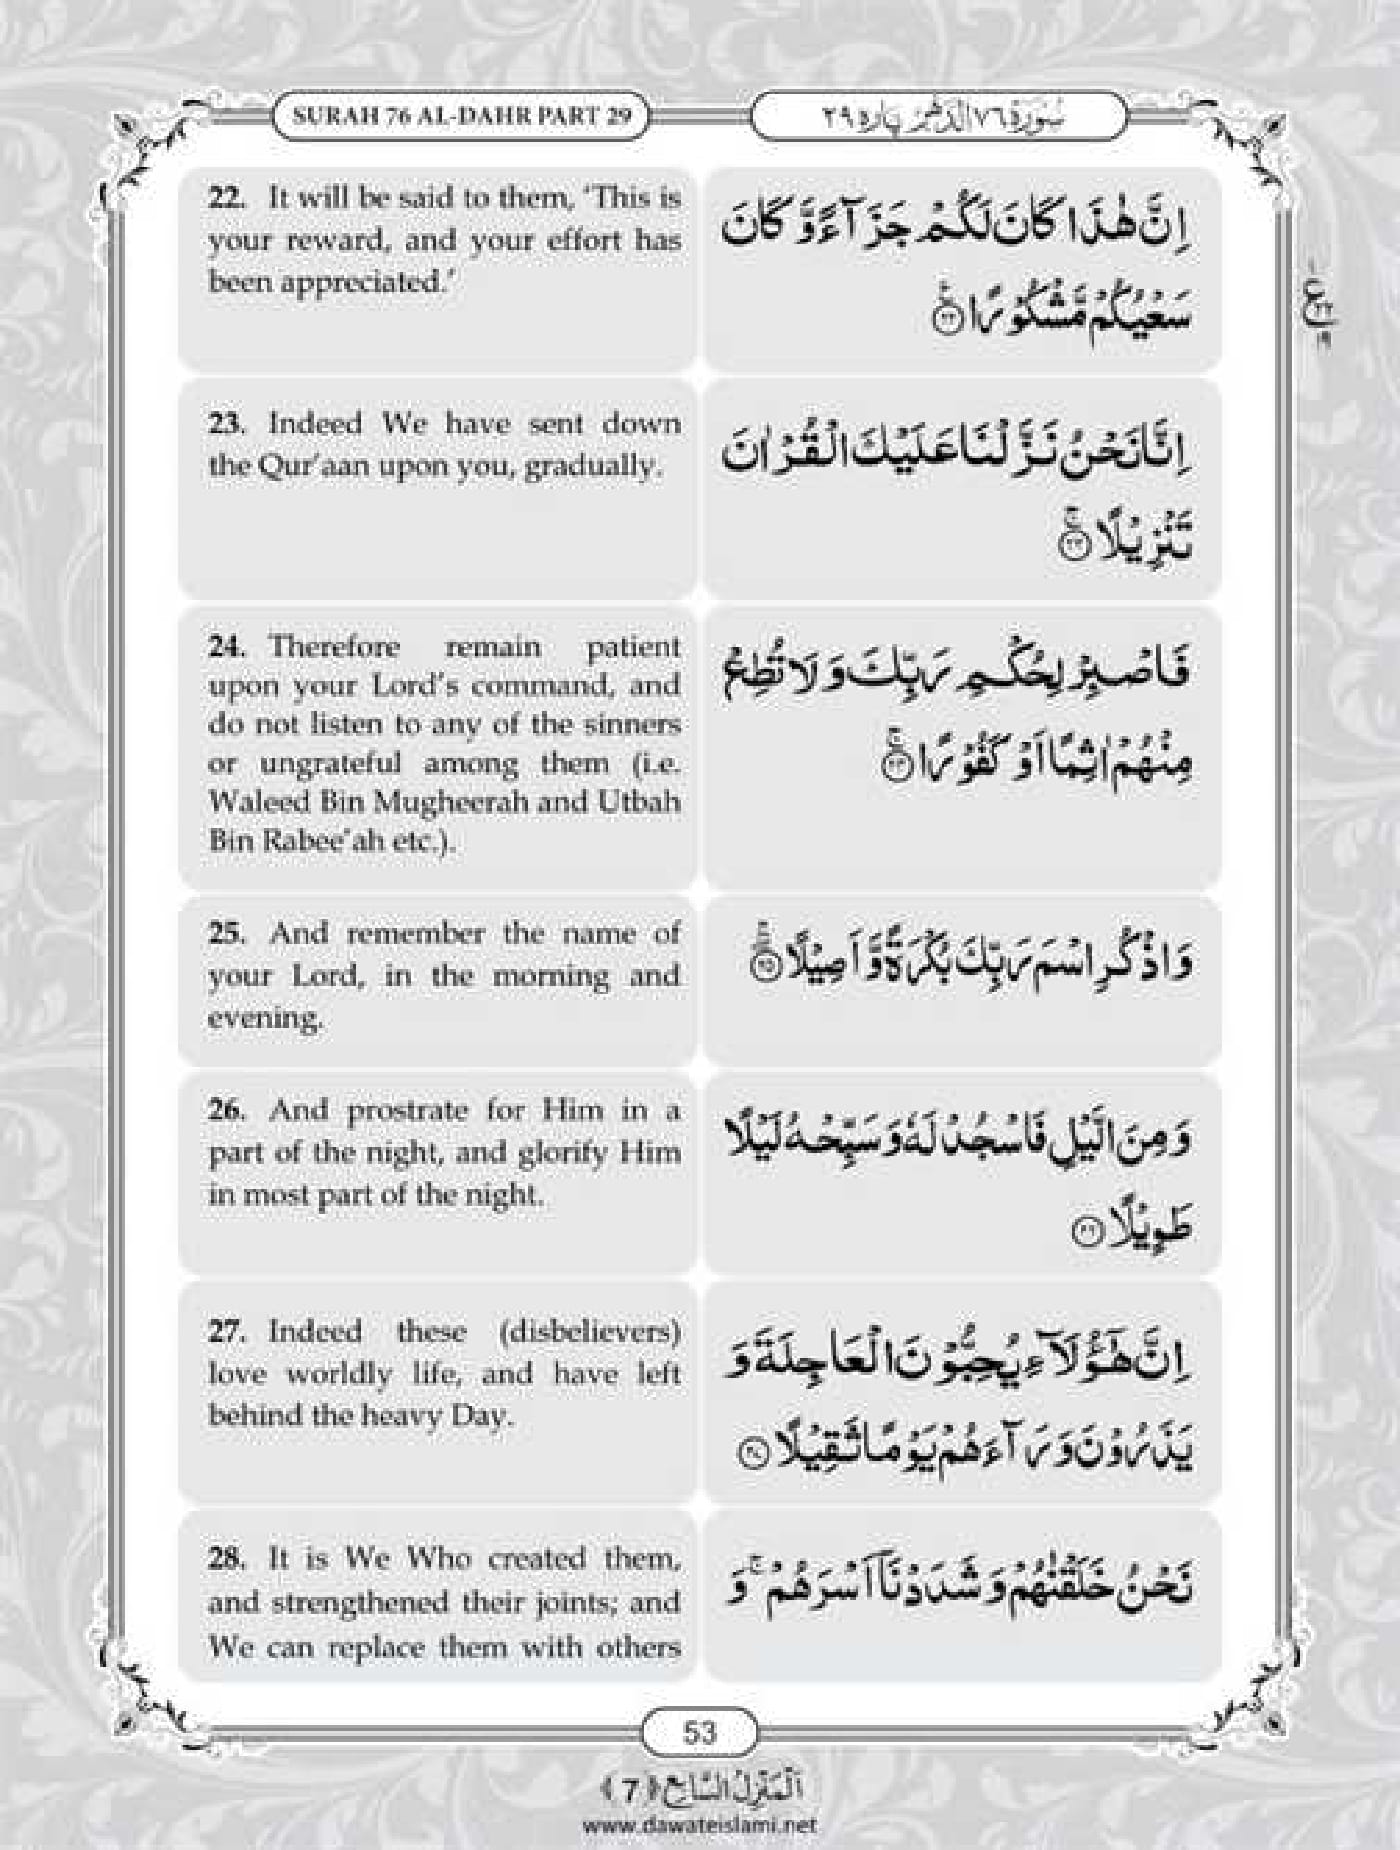 SURAH 76 AL-DAHR PART 29
سُوْرَةُ ٧٦ الدَّهْرِ پاره ٢٩
22. It will be said to them, ‘This is
your reward, and your effort has
been appreciated.’
اِنَّ هٰذَا كَانَ لَكُمْ جَزَآءً وَّ كَانَ
سَعْيُكُمْ مَّشْكُوْرًا ﴿٢٢﴾
ع
23. Indeed We have sent down
the Qur’aan upon you, gradually.
اِنَّا نَحْنُ نَزَّلْنَا عَلَيْكَ الْقُرْاٰنَ
تَنْزِيْلًا ﴿٢٣﴾
24. Therefore remain patient
upon your Lord’s command, and
do not listen to any of the sinners
or ungrateful among them (i.e.
Waleed Bin Mugheerah and Utbah
Bin Rabee’ah etc.).
فَاصْبِرْ لِحُكْمِ رَبِّكَ وَ لَا تُطِعْ
مِنْهُمْ اٰثِمًا اَوْ كَفُوْرًا ﴿٢٤﴾
25. And remember the name of
your Lord, in the morning and
evening.
وَ اذْكُرِ اسْمَ رَبِّكَ بُكْرَةً وَّ اَصِيْلًا ﴿٢٥﴾
26. And prostrate for Him in a
part of the night, and glorify Him
in most part of the night.
وَ مِنَ الَّيْلِ فَاسْجُدْ لَهٗ وَ سَبِّحْهُ لَيْلًا
طَوِيْلًا ﴿٢٦﴾
27. Indeed these (disbelievers)
love worldly life, and have left
behind the heavy Day.
اِنَّ هٰۤؤُلَآءِ يُحِبُّوْنَ الْعَاجِلَةَ وَ
يَذَرُوْنَ وَرَآءَهُمْ يَوْمًا ثَقِيْلًا ﴿٢٧﴾
28. It is We Who created them,
and strengthened their joints; and
We can replace them with others
نَحْنُ خَلَقْنٰهُمْ وَ شَدَدْنَاۤ اَسْرَهُمْ ۚ وَ
53
اَلْمَنْزِلُ السَّابِع ﴿7﴾
www.dawateislami.net